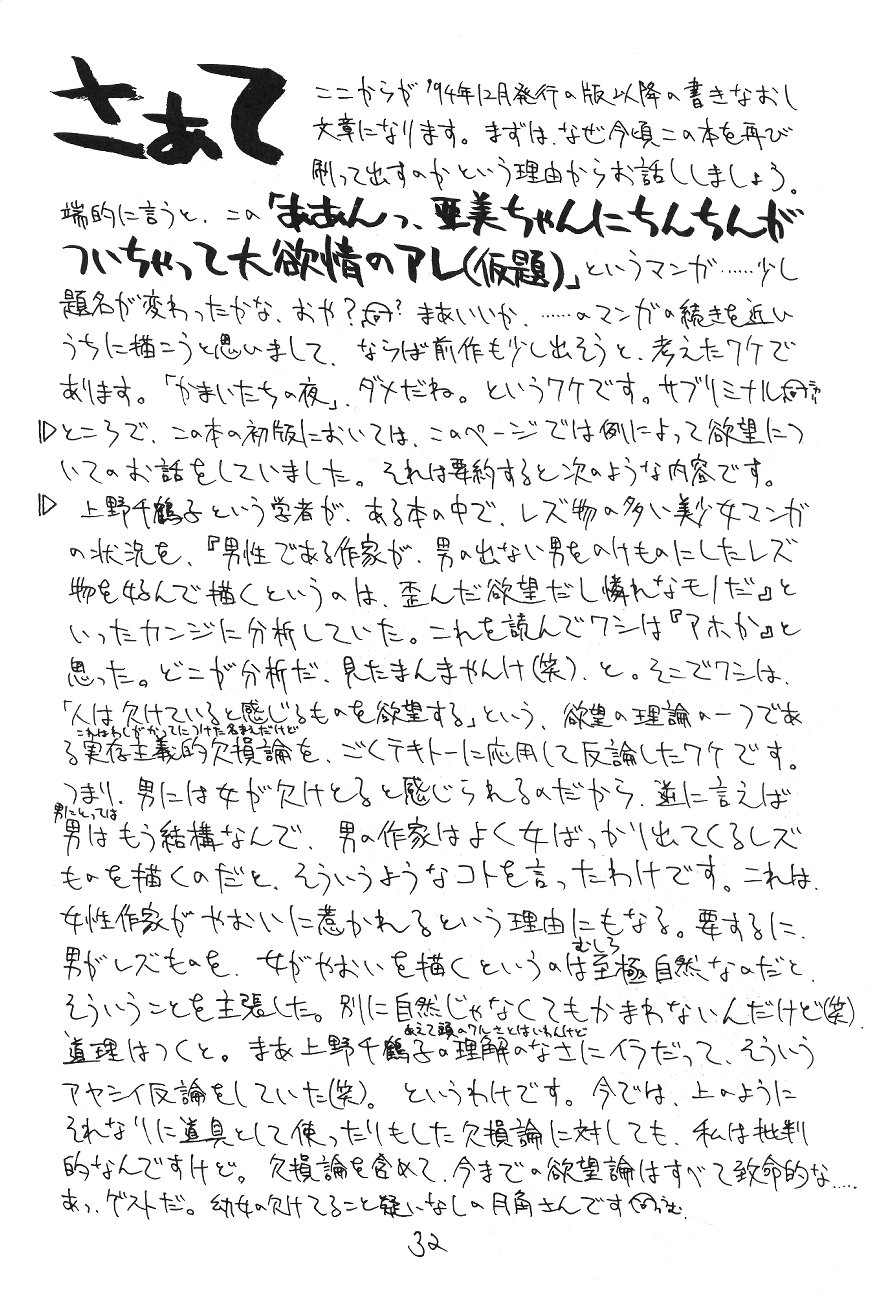 さぁて
ここからが'94年12月発行の版以降の書きなおし
文章になります。まずは、なぜ今頃この本を再び
刷って出すのかという理由からお話ししましょう。
端的に言うと、この「ああんっ、亜美ちゃんにちんちんが
ついちゃって大欲情のアレ(仮題)」というマンガ……少し
題名が変わったかな、おや?? まあいいか、……のマンガの続きを近い
うちに描こうと思いまして、ならば前作も少し出そうと、考えたワケで
あります。「かまいたちの夜」、ダメだね。というワケです。サブリミナル
ところで、この本の初版においては、このページでは例によって欲望につ
いてのお話をしていました。それは要約すると次のような内容です。
上野千鶴子という学者が、ある本の中で、レズ物の多い美少女マンガ
の状況を、『男性である作家が、男の出ない男をのけものにしたレズ
物を好んで描くというのは、歪んだ欲望だし憐れなモノだ』と
いったカンジに分析していた。これを読んでワシは『アホか』と
思った。どこが分析だ、見たまんまやんけ(笑)、と。そこでワシは、
「人は欠けていると感じるものを欲望する」という、欲望の理論の一つであ
これはわしがかってにつけた名まえだけど
る実存主義的欠損論を、ごくテキトーに応用して反論したワケです。
つまり、男には女が欠けとると感じられるのだから、逆に言えば
男にとっては
男はもう結構なんで、男の作家はよく女ばっかり出てくるレズ
ものを描くのだと、そういうようなコトを言ったわけです。これは、
女性作家がやおいに惹かれるという理由にもなる。要するに、
むしろ
男がレズものを、女がやおいを描くというのは至極自然なのだと、
そういうことを主張した。別に自然じゃなくてもかまわないんだけど(笑)、
あえて頭のワルさとはいわんけど
道理はつくと。まあ上野千鶴子の理解のなさにイラだって、そういう
アヤシイ反論をしていた(笑)。というわけです。今では、上のように
それなりに道具として使ったりもした欠損論に対しても、私は批判
的なんですけど。欠損論を含めて、今までの欲望論はすべて致命的な……
あっ、ゲストだ。幼女の欠けてること疑いなしの月角さんです
32